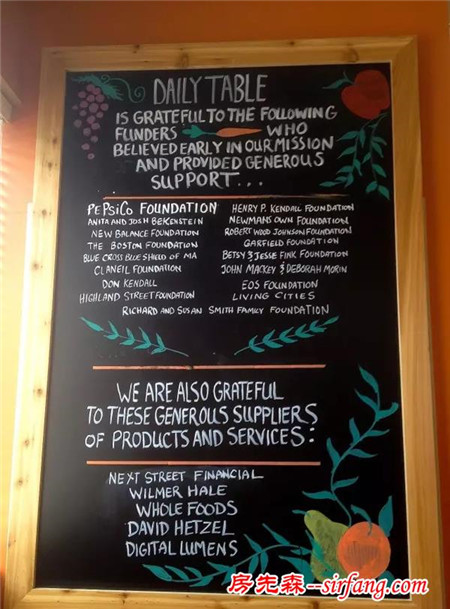 DAILY TABLE
IS GRATEFUL TO THE FOLLOWING
FUNDERS WHO
BELIEVED EARLY IN OUR MISSION
AND PROVIDED GENEROUS
SUPPORT...
PEPSICO FOUNDATION
ANITA AND JOSH BEKENSTEIN
NEW BALANCE FOUNDATION
THE BOSTON FOUNDATION
BLUE CROSS BLUE SHIELD OF MA
CLANEIL FOUNDATION
DON KENDALL
HIGHLAND STREET FOUNDATION
HENRY P. KENDALL FOUNDATION
NEWMANS OWN FOUNDATION
ROBERT WOOD JOHNSON FOUNDATION
GARFIELD FOUNDATION
BETSY & JESSE FINK FOUNDATION
JOHN MACKEY & DEBORAH MORIN
EOS FOUNDATION
LIVING CITIES
RICHARD AND SUSAN SMITH FAMILY FOUNDATION
WE ARE ALSO GRATEFUL
TO THESE GENEROUS SUPPLIERS
OF PRODUCTS AND SERVICES:
NEXT STREET FINANCIAL
WILMER HALE
WHOLE FOODS
DAVID HETZEL
DIGITAL LUMENS
房先森--sirfang.com